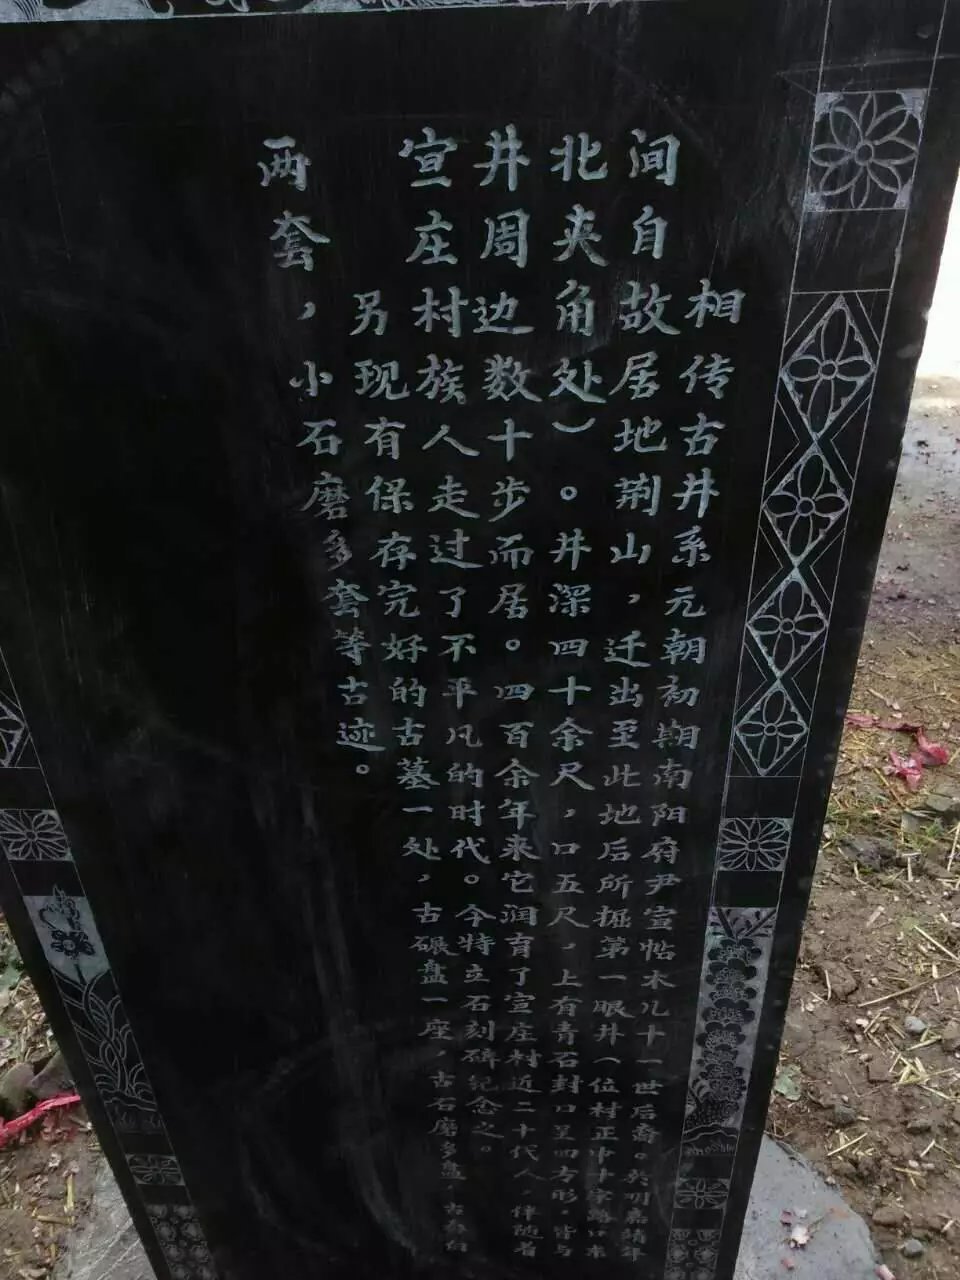 相传古井系元朝初期南阳府尹宣帖木儿十一世后裔。於明嘉靖年
间自故居地荆山，迁出至此地后所掘第一眼井（位村正中十字路口东
北夹角处）。井深四十余尺，口五尺，上有青石封口呈四方形。皆与
井周边数十步而居。四百余年来它润育了宣庄村近二十代人，伴随着
宣庄村族人走过了不平凡的时代。今特立石刻碑纪念之。
另现有保存完好的古墓一处，古碾盘一座，古石磨多盘，古
两套，小石磨多套等古迹。